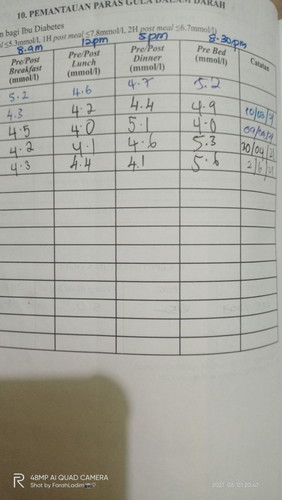 10. PEMANTAUAN PARAS GULA DALAM DARAH
n bagi Ibu Diabetes
l ≤5.3mmol/l, 1H post meal ≤7.8mmol/l, 2H post meal ≤6.7mmol/l)
8.am 12pm 5pm 8.30pm
Pre/Post Breakfast (mmol/l) Pre/Post Lunch (mmol/l) Pre/Post Dinner (mmol/l) Pre Bed (mmol/l) Catatan
5.2 4.6 4.7 5.2
4.3 4.2 4.4 4.9
4.5 4.0 5.1 4.0
4.2 4.1 4.6 5.3 20/04
4.3 4.4 4.1 5.6
48MP AI QUAD CAMERA
Shot by FarahLadim